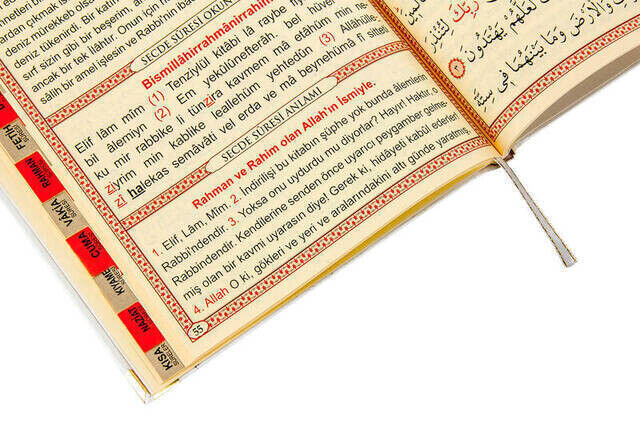 deniz mürekkep olsa
deniz tükenirdi. Bir katın
sırf sizin gibi bir beşerim, am
ancak bir tek ilahtır. Onun için h
sâlih bir amel işlesin ve Rabb'ine ibad
SECDE SÛRESİ OKUN
Bismillâhirrahmânirrahîm
Elif lâm mîm (1) Tenzîylül kitâbi lâ raybe
bil âlemiyn (2) Em yekûlûnefterâh. bel h
ku mir rabbike li tünzira kavmem mâ etâhüm min ne
ziyrim min kablike leallehüm yehtedûn (3) Allâhülle
zî halekas semâvâti vel erda ve mâ beynehümâ fî sitteti
SECDE SÛRESİ ANLAMI
Rahman ve Rahim olan Allah'ın ismiyle.
1. Elif, Lâm, Mîm. 2. İndirilişi bu kitabın şüphe yok bunda âlemlerin
Rabbi'ndendir. 3. Yoksa onu uydurdu mu diyorlar? Hayır! Haktır, o
Rabbindendir. Kendilerine senden önce uyarıcı peygamber gelme-
miş olan bir kavmi uyarasın diye! Gerek ki, hidâyeti kabul ederler!
4. Allah O ki, gökleri ve yeri ve aralarındakini altı günde yaratmış,
55
FETİH
RAHMAN
VAKIA
CUMA
KIYAME
NAZİAT
KISA
SURELER
رَبِّكَ لِتُنْذِرَ
لَعَلَّهُمْ يَهْتَدُونَ
وَالْأَرْضَ وَمَا بَيْنَهُمَا فِي سِتَّةِ